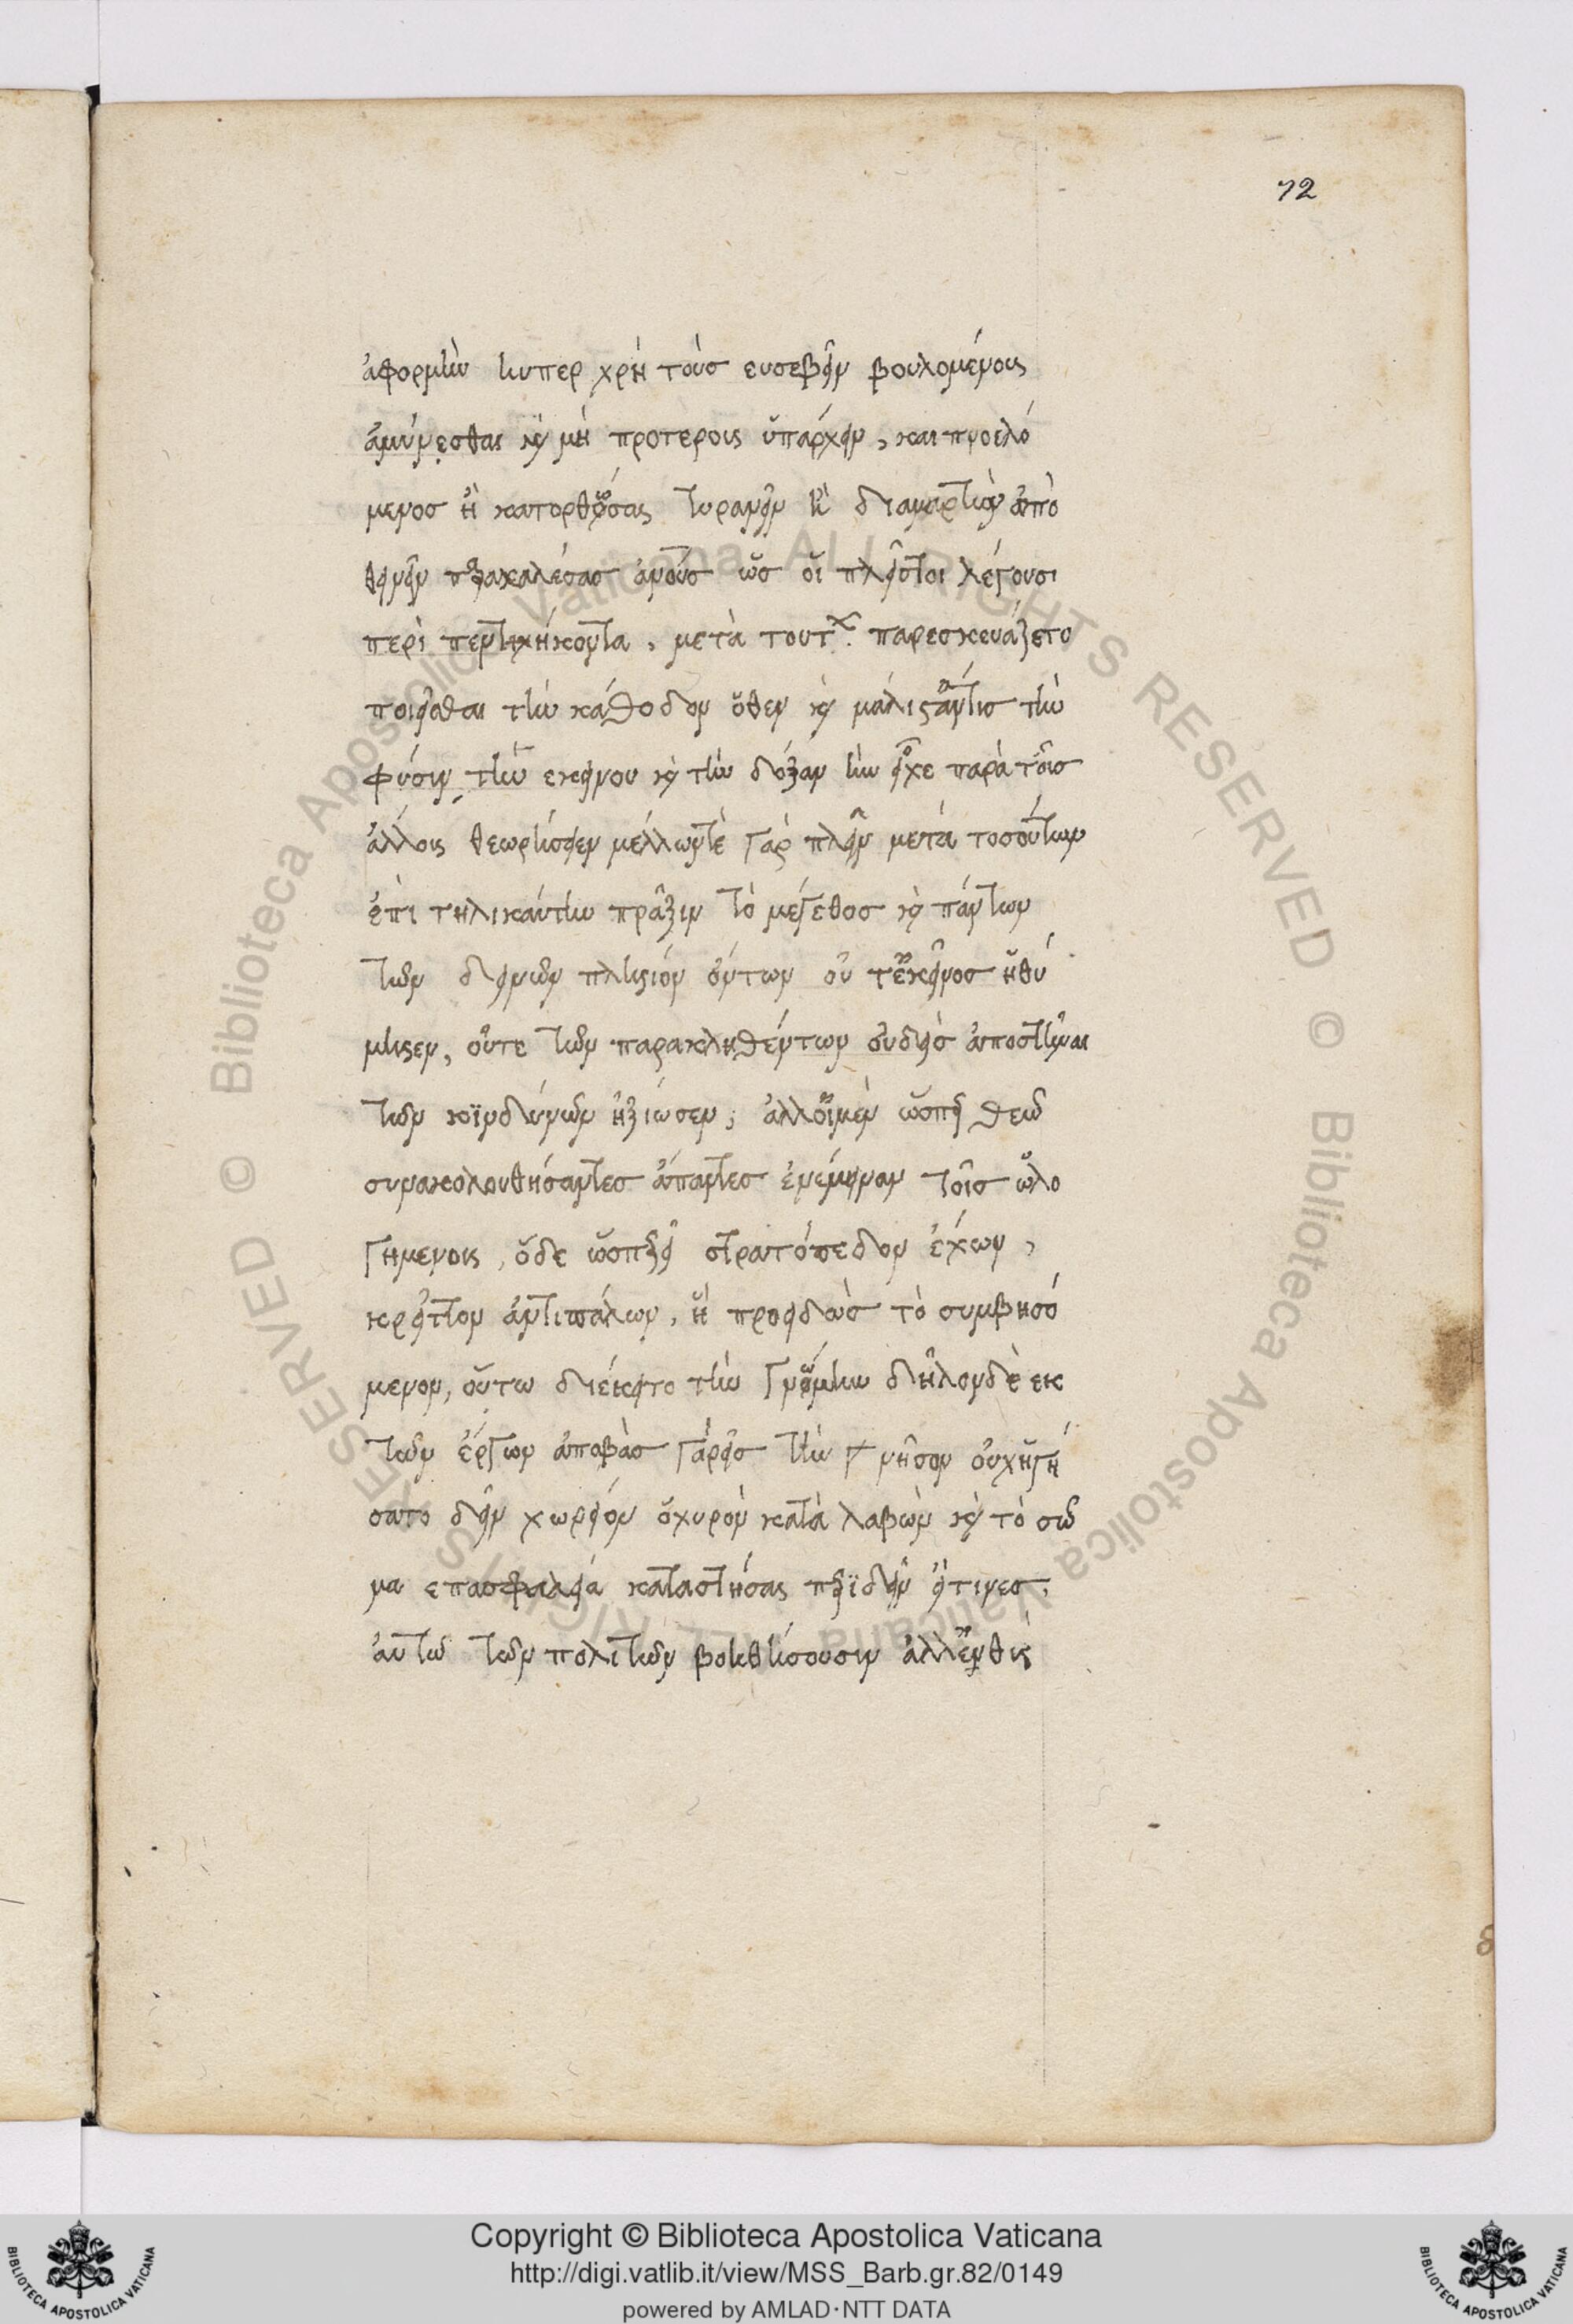 72
ἀφορμὴν ἥνπερ χρὴ τοὺσ ευσεβεῖν βουλομένους
ἀμύνεσθαι καὶ μὴ προτερους ὑπάρχειν, και προελό
μενοσ ἢ κατορθώσας τυρανεῖν ἢ διαμαρτὼν ἀπὸ
θανεῖν παρακαλέσασ ἀνοὺσ ὡσ οἱ πλεῖστοι λέγουσι
περὶ πεντηκήκοντα, μετὰ τουτ παρεσκευάζετο
ποιεῖσθαι τὴν κάθοδον ὅθεν καὶ μάλιστἄντισ τὴν
φύσιν τὴν εκείνου καὶ τὴν δόξαν ἣν εἶχε παρὰ τοῖσ
ἄλλοις θεωρήσειεν μέλλωντὲ γὰρ πλεῖν μετὰ τοσούτων
ἐπὶ τηλικαύτην πρᾶξιν τὸ μέγεθοσ καὶ πάντων
τῶν δεινῶν πλησιόν ὄντων οὐ τἐκεῖνοσ ἠθύ
μησεν, οὔτε τῶν παρακληθέντων οὐδεὶσ ἀποστῆναι
τῶν κϊνδύνων ἠξιώσεν, ἀλλοἱμὲν ὥσπερ θεῶ
συνακολουθήσαντεσ ἅπαντεσ ἐνέμειναν τοῖσ ὡλο
γημενοις, ὅδε ὥσπερεἰ στρατόπεδον ἐχων,
κρεῖττον ἀντιπάλων, ἢ προειδὼσ τὸ συμβησό
μενον, οὕτω διέκειτο τὴν γνώμην δῆλονδὲ εκ
τῶν ἐργων ἀποβὰσ γὰρεἰσ τὴν νῆσον οὐχἡγή
σατο δεῖν χωρίον ὀχυρὸν κατὰ λαβὼν καὶ τὸ σῶ
μα επασφαλεία καταστήσας περϊδεῖν εἴτινεσ,
ἀυτῶ τῶν πολιτῶν βοηθήσουσιν ἀλλεὐθὺς
δ
Copyright © Biblioteca Apostolica Vaticana
http://digi.vatlib.it/view/MSS_Barb.gr.82/0149
powered by AMLAD·NTT DATA